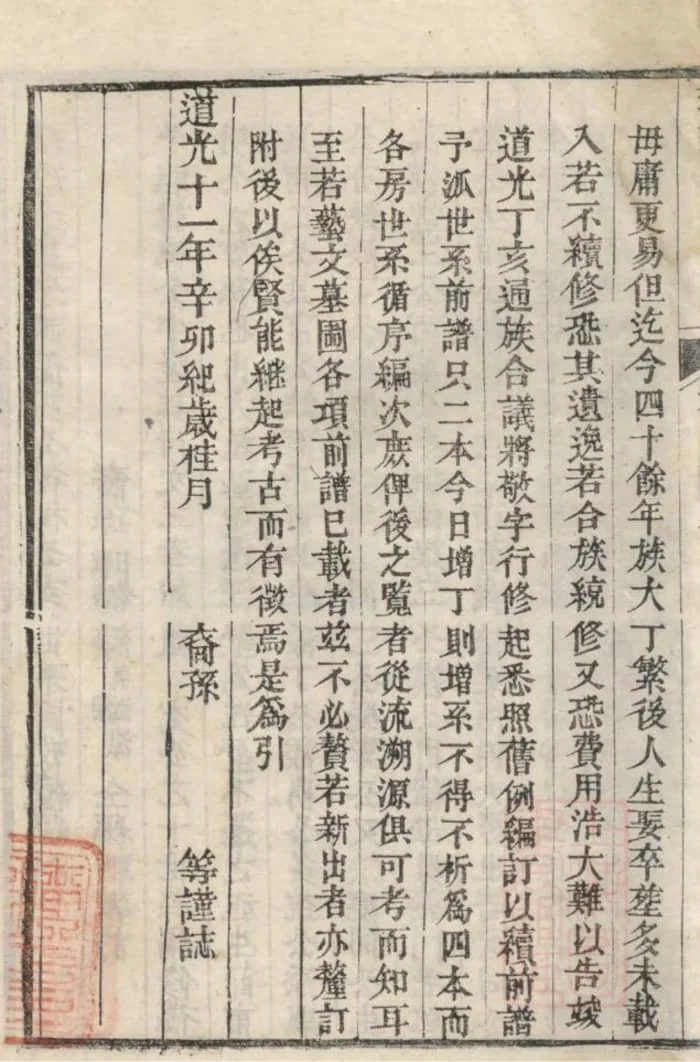 毋庸更易但迄今四十餘年族大丁繁後人生娶卒塟多未載
入若不續修恐其遺逸若合族統修又恐費用浩大難以告竣
道光丁亥通族合議將敬字行修起悉照舊例編訂以續前譜
予派世系前譜只二本今日增丁則增系不得不析爲四本而
各房世系循序編次庶俾後之覧者從流溯源俱可考而知耳
至若藝文墓圖各項前譜已載者茲不必贅若新出者亦釐訂
附後以俟賢能継起考古而有徵焉是爲引
道光十一年辛卯紀歲桂月 裔孫 等謹誌